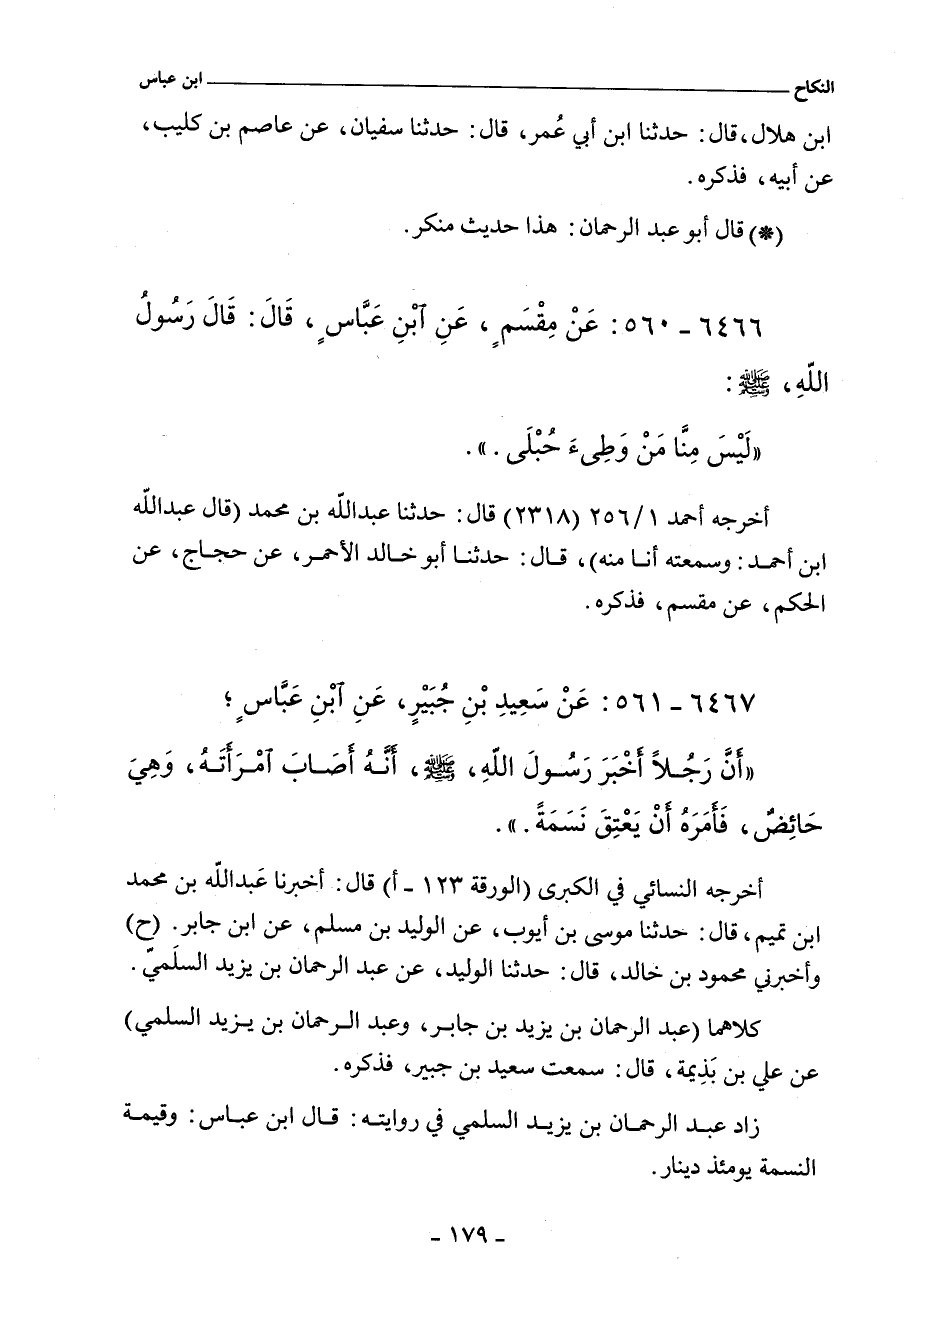 النكاح ـــــــــــــــــ ابن عباس
ابن هلال، قال: حدثنا ابن أبي عُمر، قال: حدثنا سفيان، عن عاصم بن كليب،
عن أبيه، فذكره.
(*) قال أبو عبد الرحمان: هذا حديث منكر.
٦٤٦٦ ـ ٥٦٠: عَنْ مِقْسَمٍ، عَنِ ٱبْنِ عَبَّاسٍ، قَالَ: قَالَ رَسُولُ
اللّهِ، ﷺ:
«لَيْسَ مِنَّا مَنْ وَطِىءَ حُبْلَى.».
أخرجه أحمد ٢٥٦/١ (٢٣١٨) قال: حدثنا عبداللّه بن محمد (قال عبداللّه
ابن أحمد: وسمعته أنا منه)، قال: حدثنا أبو خالد الأحمر، عن حجاج، عن
الحكم، عن مقسم، فذكره.
٦٤٦٧ ـ ٥٦١: عَنْ سَعِيدِ بْنِ جُبَيْرٍ، عَنِ ٱبْنِ عَبَّاسٍ؛
«أَنَّ رَجُلاً أَخْبَرَ رَسُولَ اللّهِ، ﷺ، أَنَّهُ أَصَابَ ٱمْرَأَتَهُ، وَهِيَ
حَائِضٌ، فَأَمَرَهُ أَنْ يَعْتِقَ نَسَمَةً.».
أخرجه النسائي في الكبرى (الورقة ١٢٣ ـ أ) قال: أخبرنا عَبداللّه بن محمد
ابن تميم، قال: حدثنا موسى بن أيوب، عن الوليد بن مسلم، عن ابن جابر. (ح)
وأخبرني محمود بن خالد، قال: حدثنا الوليد، عن عبد الرحمان بن يزيد السلَميّ.
كلاهما (عبد الرحمان بن يزيد بن جابر، وعبد الرحمان بن يزيد السلمي)
عن علي بن بَذِيمة، قال: سمعت سعيد بن جبير، فذكره.
زاد عبد الرحمان بن يزيد السلمي في روايته: قال ابن عباس: وقيمة
النسمة يومئذ دينار.
ـ ١٧٩ ـ